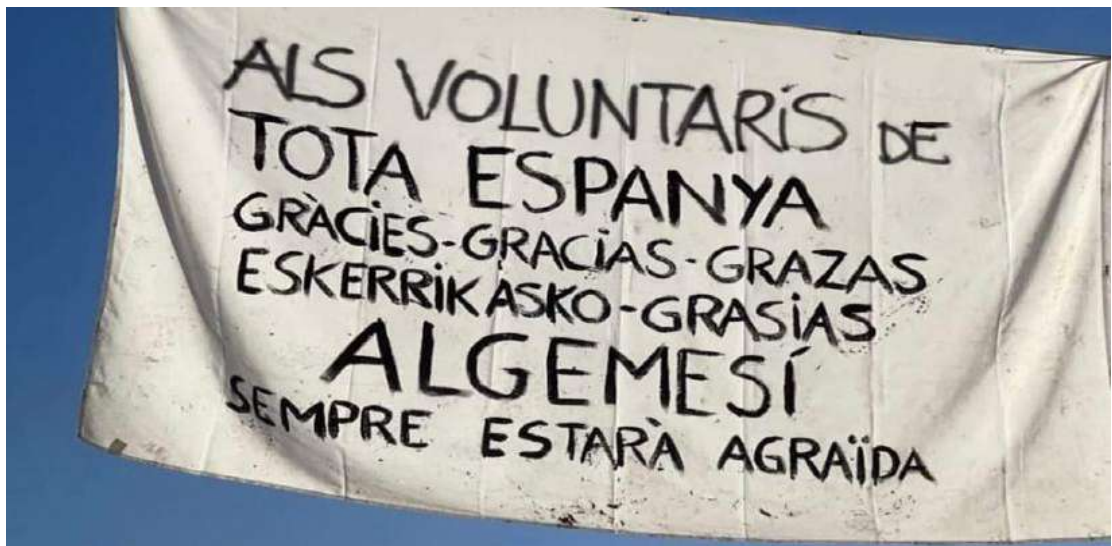 ALS VOLUNTARIS DE
TOTA ESPANYA
GRÀCIES-GRACIAS-GRAZAS
ESKERRIK ASKO-GRASIAS
ALGEMESÍ
SEMPRE ESTARÀ AGRAÏDA